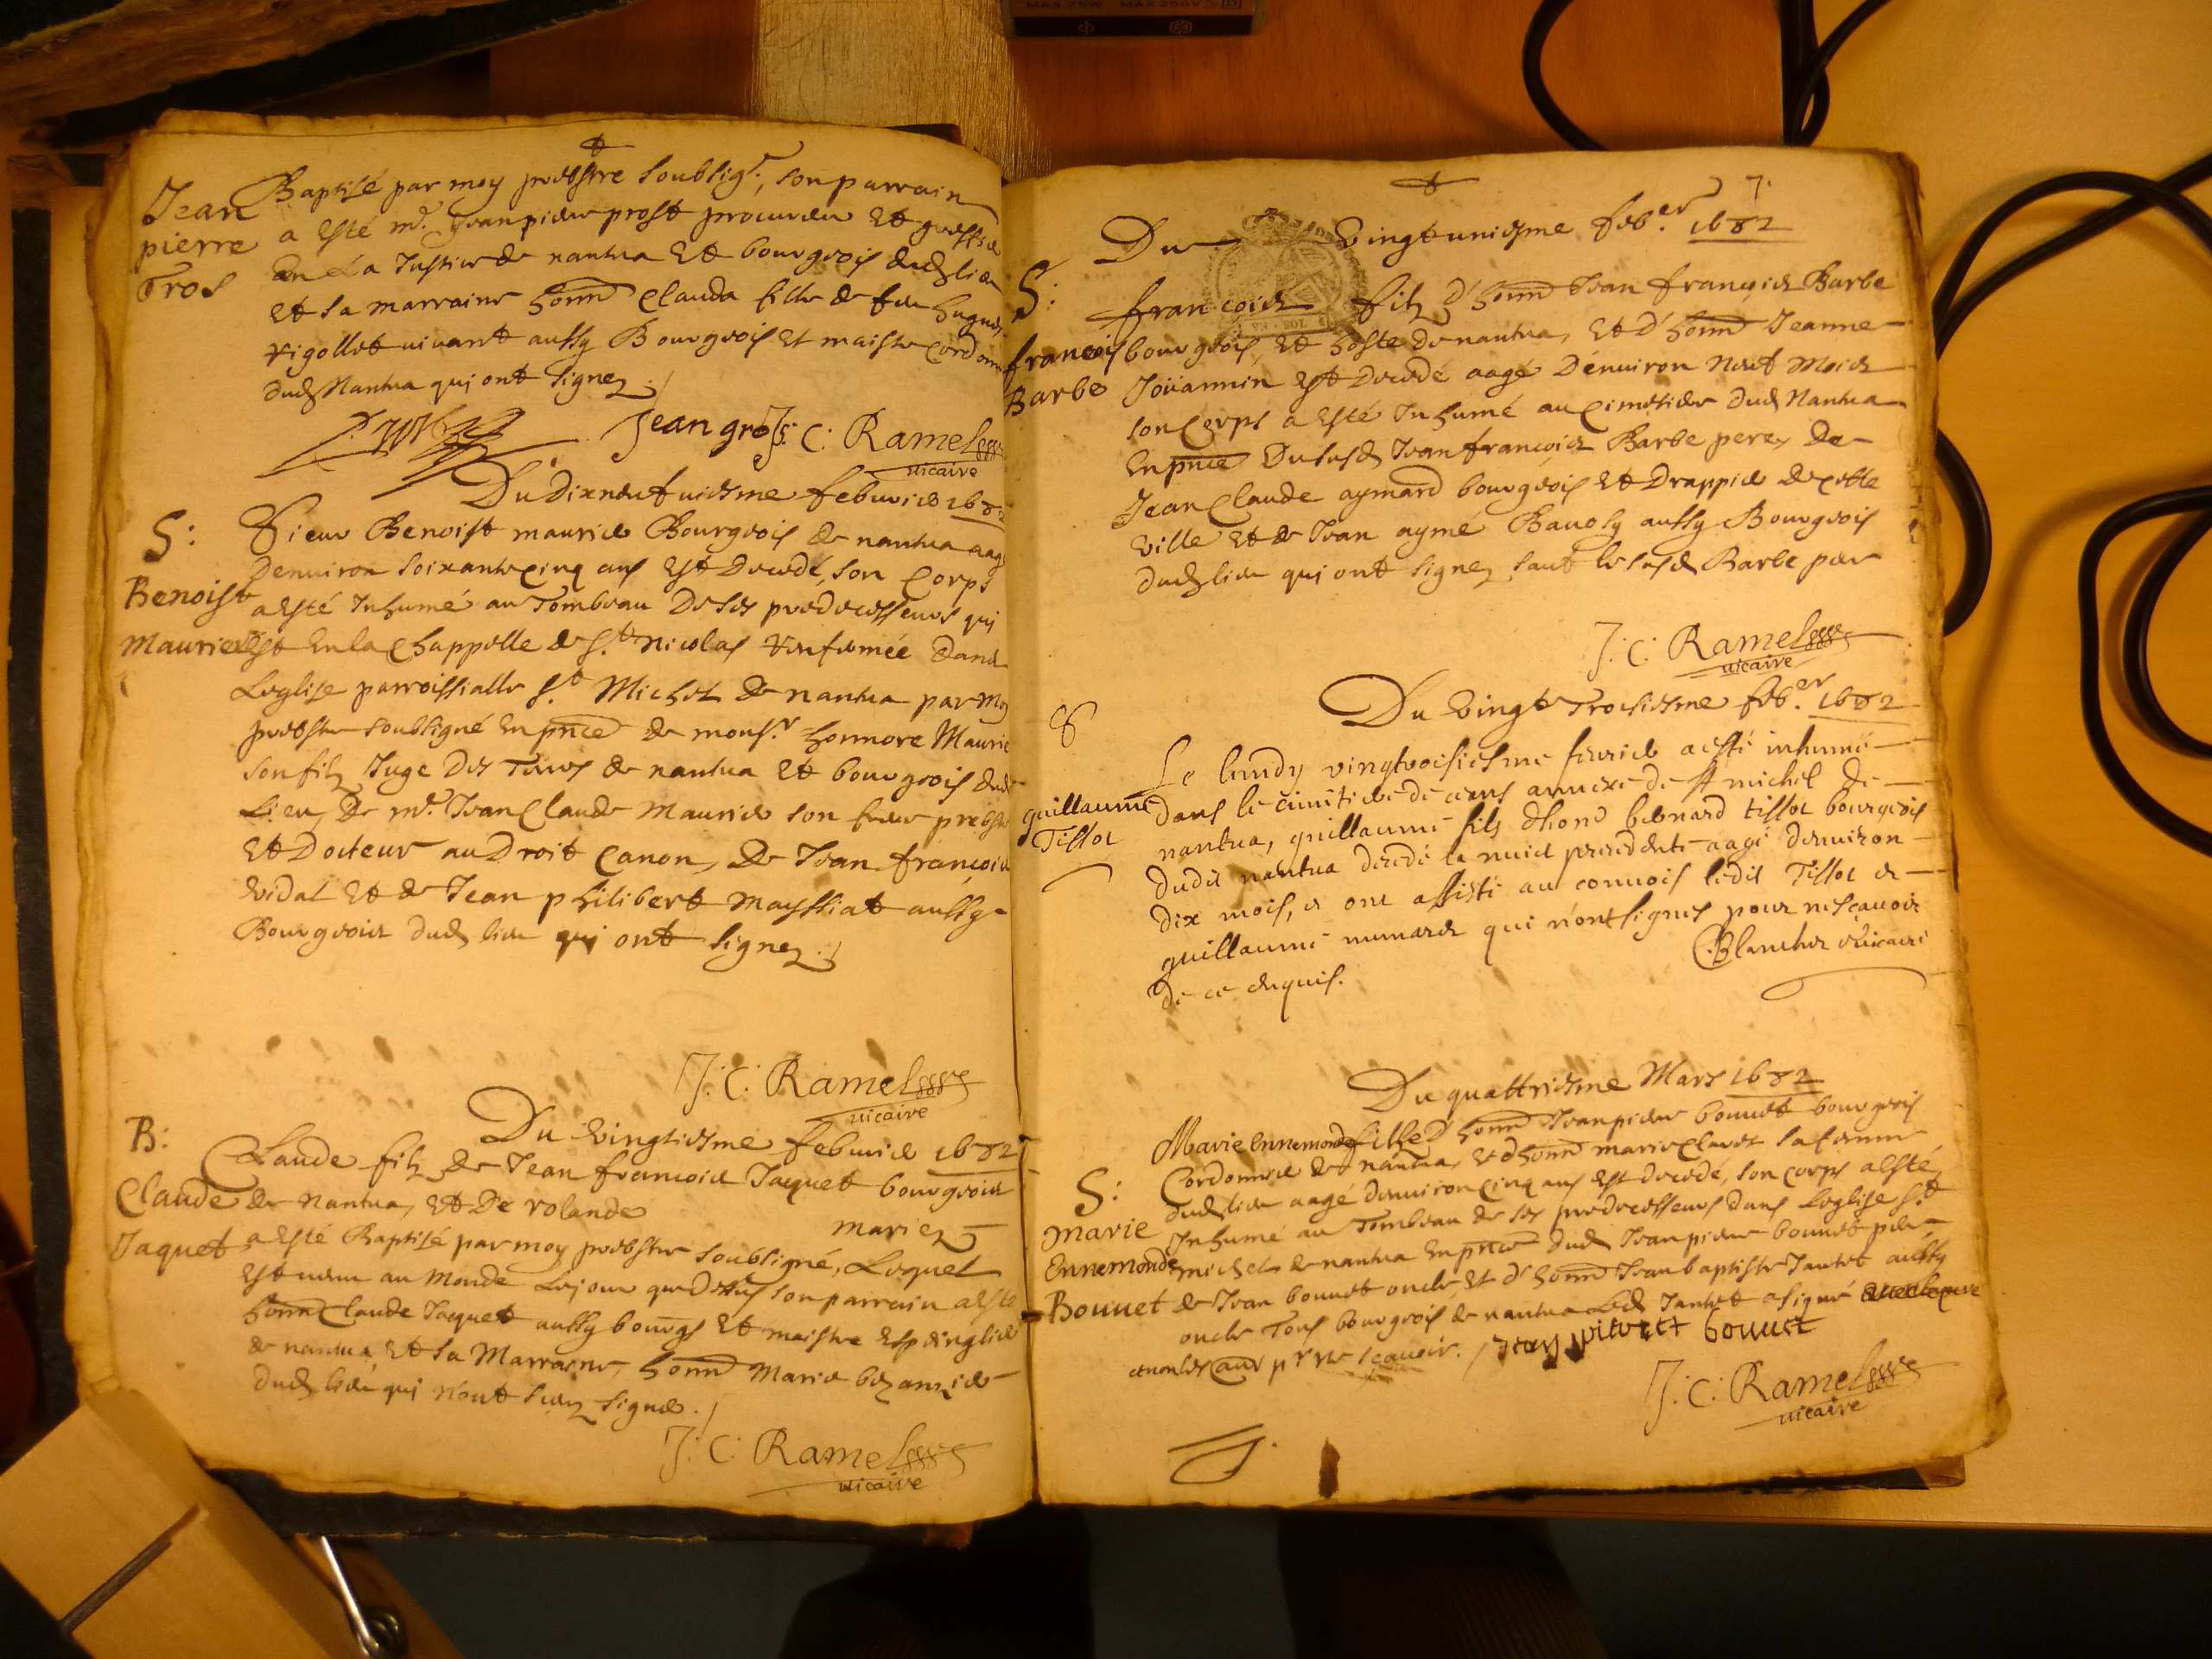 Jean
pierre
Gros
Baptisé par moy prebstre soubsigé., son parrain
a esté me. Jean pierre prost procureur et greffier
En La Justice de nantua et bourgeois dud lieu
et sa marraine honne Clauda fille de feu hugues
rigollet vivant aussy Bourgeois et maistre cordonn
dud Nantua qui ont signez
Jean gros J: C: Ramel
vicaire
Du Dixneufuiesme febvrier 1682
S:
Benoist
Maurier
Sieur Benoist maurier Bourgeois de nantua aagé
Denuiron soixante cinq ans est decedé, son Corps
a esté Inhumé au Tombeau De ses predecesseurs qui
est En la Chappelle de St. Nicolas renfermée dans
Leglise parroissialle St Michel de nantua par Moy
prebstre soubsigné En pnce de monsr. honnore Maurier
son filz Juge Des Terres de nantua et bourgeois dud
Lieu, De me. Jean Claude Maurier son frere prebstre
et Docteur au Droit Canon, De Jean françois
vidal et de Jean philibert Mayssiat aussy
Bourgeois dud lieu qui ont signez
J: C: Ramel
vicaire
Du vingtiesme febvrier 1682
B:
Claude
Jaquet
Claude filz de Jean francois Jaquet bourgeois
de nantua, et De rolande mariez
a esté Baptisé par moy prebstre soubsigné, Lequel
est venu au Monde Le jour que dessus son parrain a esté
honne Claude Jaquet aussy bourgs et maistre espinglier
de nantua, et sa Marraine, honne Marie
dud lieu qui n'ont sceu signer.
J: C: Ramel
vicaire
7.
Du vingt uniesme feber. 1682
S:
francois
Barbe
francois filz d'honne Jean françois Barbe
bourgeois, et hoste de nantua, et d'honne Jeanne
Joüannin est decedé aagé D'enuiron Neuf Mois
son Corps a esté Inhumé au Cimetiere dud Nantua
En pnce Dususd Jean françois Barbe pere, De
Jean Claude aymard bourgeois et Drappier de cette
ville et de Jean aymé Bauoly aussy Bourgeois
dud lieu qui ont signez sauf le susd Barbe pere
J: C: Ramel
vicaire
Du vingt Troisiesme feber. 1682
S
guillaume
Tissot
Le lundy vingtroisiesme feurier a esté inhumé
dans le cimetiere de ceans annexe de st michel de
nantua, guillaume fils dhone bernard tissot bourgeois
dudit nantua decedé la nuict precedente aagé denuiron
dix mois, et ont assisté au conuois ledit Tissot et
guillaume qui n'ont signés pour nescauoir
de ce enquis.
Blanchet vicaire
Du quattriesme Mars 1682
S:
Marie
Ennemonde
Bouuet
Marie Ennemonde fille D'honne Jean pierre bouuet bourgeois
Cordonnier de nantua, et d'honne marie Claude sa femme
dud lieu aagé denuiron Cinq ans est decedé, son corps a esté
Inhumé au Tombeau de ses predecesseurs dans Leglise St.
michel de nantua En pnce dud Jean pierre bouuet pere
de Jean bouuet oncle, et d'honne Jean baptiste Jantet aussy
oncle Tous bourgeois de nantua Led Jantet a signé
et non les autr pr ne scauoir.
bouuet
J: C: Ramel
vicaire